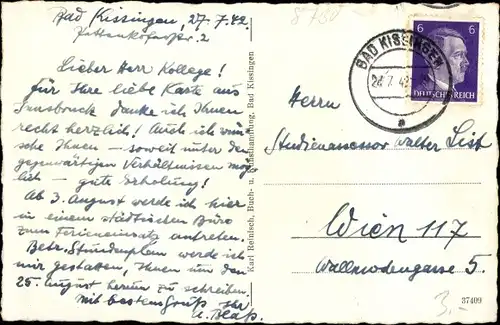 Bad Kissingen, 27.7.42.
Pettenkoferstr. 2
Lieber Herr Kollege!
Für Ihre liebe Karte aus
Innsbruck danke ich Ihnen
recht herzlich! Auch ich wün-
sche Ihnen – soweit unter den
gegenwärtigen Verhältnissen mög-
lich – gute Erholung!
Ab 3. August werde ich hier
in einem städtischen Büro
zum Ferieneinsatz antreten.
Betr. Stundenplan werde ich
mir gestatten, Ihnen um den
25. August herum zu schreiben.
Mit bestem Gruß Ihr
Karl Reinisch, Buch- u. Kunsthandlung, Bad Kissingen
BAD KISSINGEN
7.42
a
6 6
DEUTSCHES REICH
Herrn
Studienassessor Walter List
Wien 117
Wallmodengasse 5.
37409
3.-